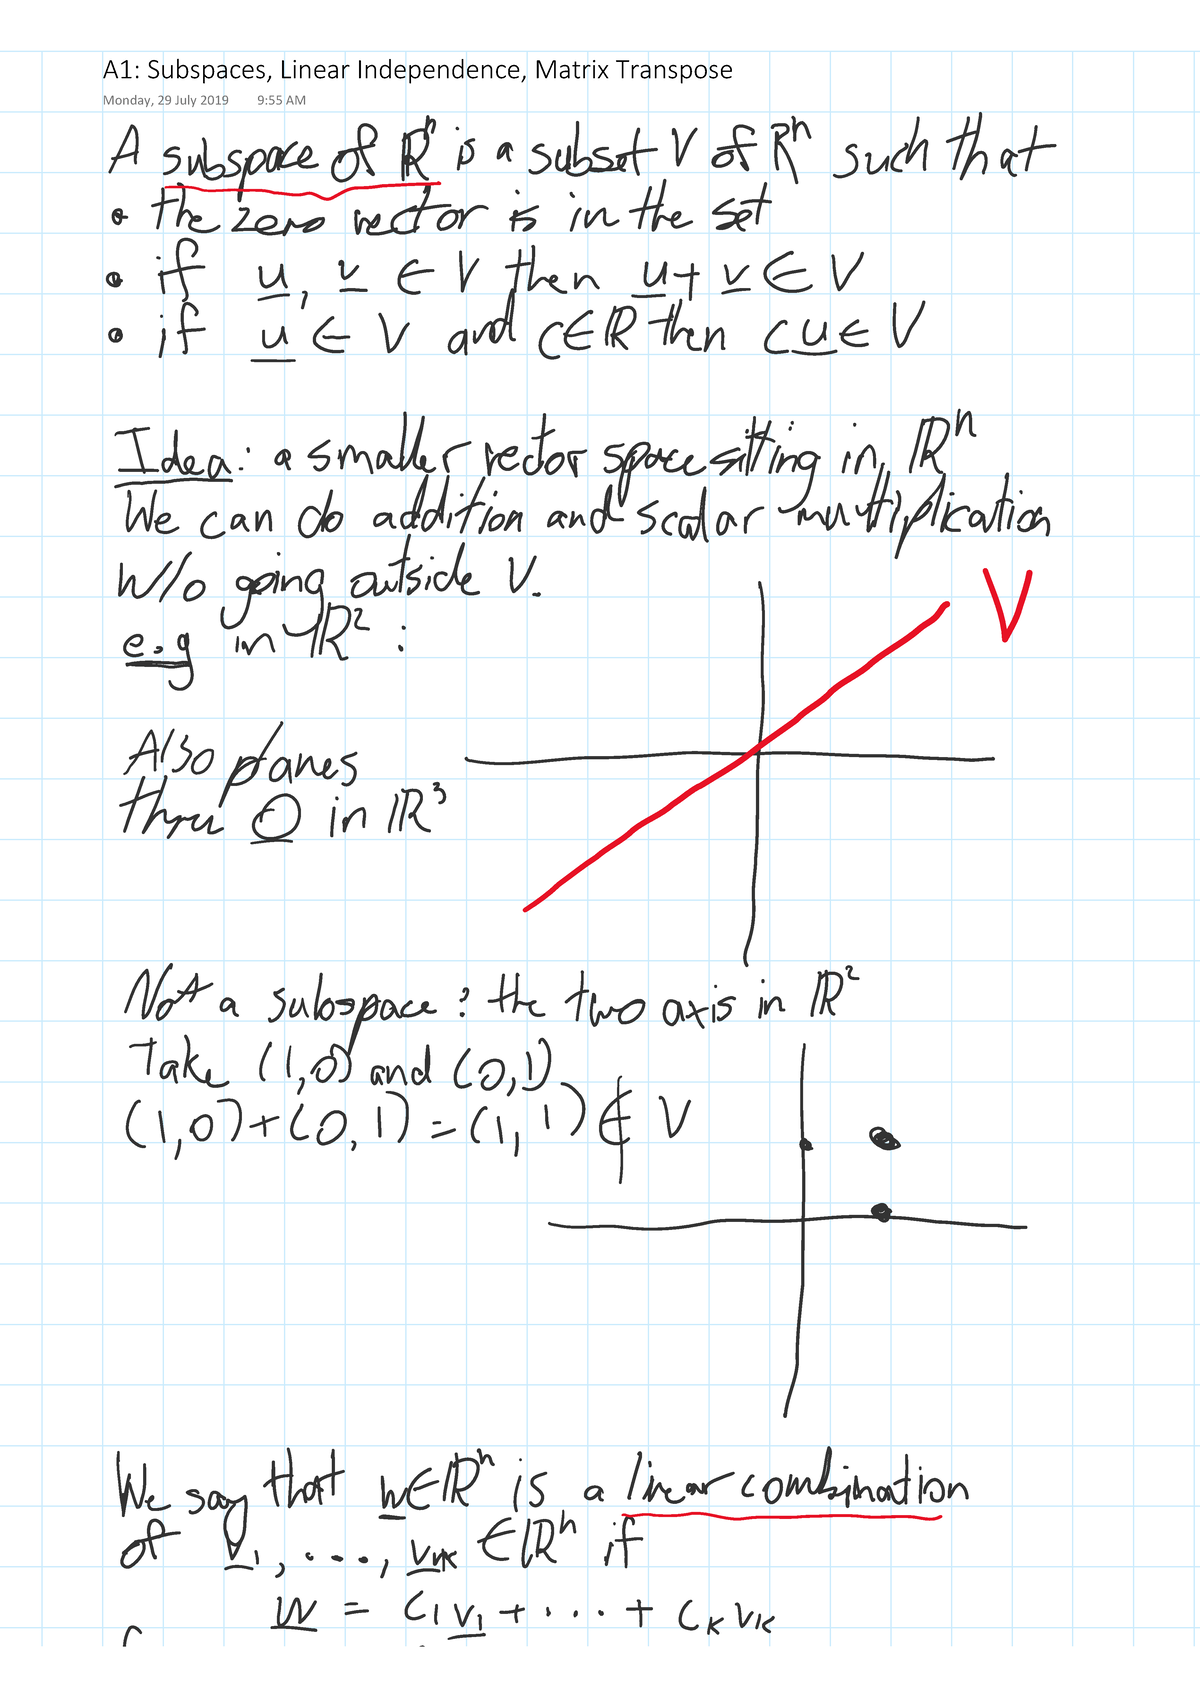 A1: Subspaces, Linear Independence, Matrix Transpose
Monday, 29 July 2019 9:55 AM
A subspace of ℝⁿ is a subset V of ℝⁿ such that
• the zero vector is in the set
• if u, v ∈ V then u + v ∈ V
• if u ∈ V and c ∈ ℝ then cu ∈ V
Idea: a smaller vector space sitting in ℝⁿ
We can do addition and scalar multiplication
w/o going outside V.
e.g in ℝ² :
V
Also planes
thru O in ℝ³
Not a subspace: the two axis in ℝ²
Take (1,0) and (0,1)
(1,0)+(0,1) = (1,1) ∉ V
We say that w ∈ ℝⁿ is a linear combination
of v₁, ..., vₖ ∈ ℝⁿ if
w = c₁v₁ + ... + cₖvₖ